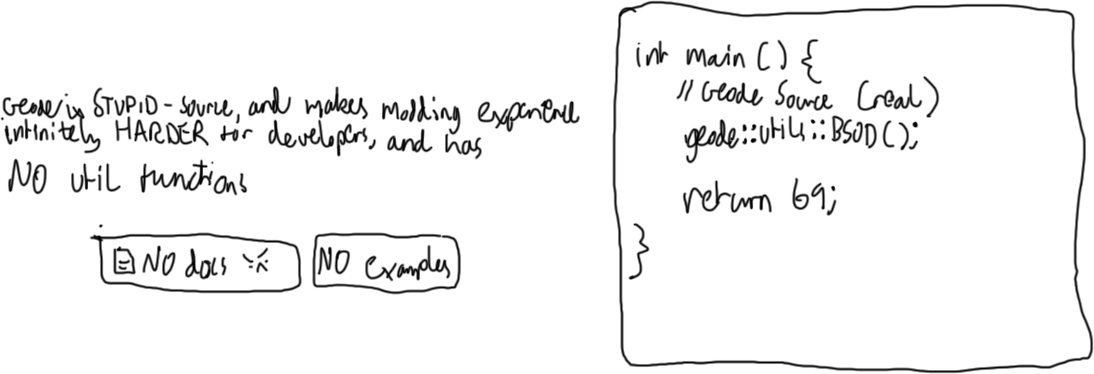 Geode is STUPID-source, and makes modding experience
infinitely HARDER for developers, and has
NO util functions
NO docs
NO examples
int main() {
// Geode Source (real)
geode::utils::BSOD();
return 69;
}